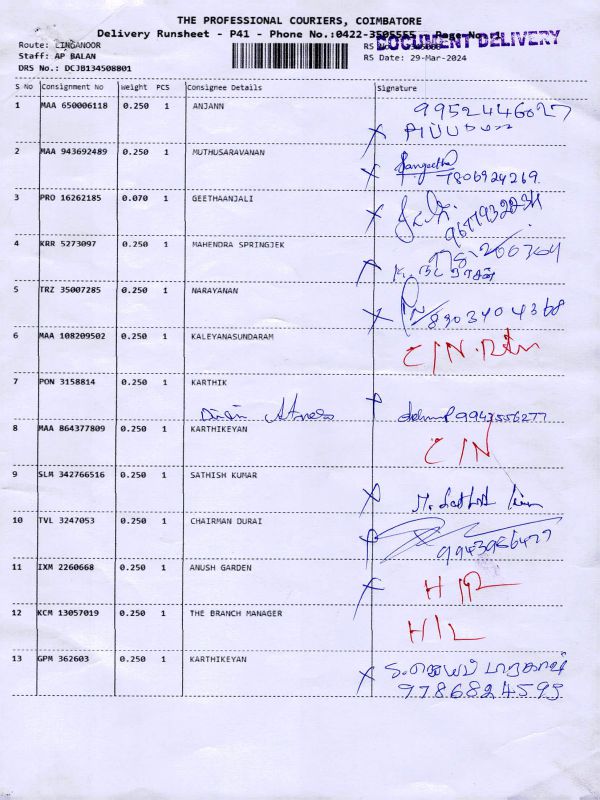 THE PROFESSIONAL COURIERS, COIMBATORE
Delivery Runsheet - P41 - Phone No.:0422-3505555 Page No
DOCUMENT DELIVERY
Route: LINGANOOR
RS No
Staff: AP BALAN
RS Date: 29-Mar-2024
DRS No.: DCJB134508801
S No Consignment No Weight PCS Consignee Details Signature
1 MAA 650006118 0.250 1 ANJANN 9952446027
2 MAA 943692489 0.250 1 MUTHUSARAVANAN Sangeetha
7806924269
3 PRO 16262185 0.070 1 GEETHAANJALI
4 KRR 5273097 0.250 1 MAHENDRA SPRINGJEK
5 TRZ 35007285 0.250 1 NARAYANAN 8903404368
6 MAA 108209502 0.250 1 KALEYANASUNDARAM C/N.
7 PON 3158814 0.250 1 KARTHIK
9943556277
8 MAA 864377809 0.250 1 KARTHIKEYAN C/N
9 SLM 342766516 0.250 1 SATHISH KUMAR
10 TVL 3247053 0.250 1 CHAIRMAN DURAI
9943956477
11 IXM 2260668 0.250 1 ANUSH GARDEN
12 KCM 13057019 0.250 1 THE BRANCH MANAGER H/L
13 GPM 362603 0.250 1 KARTHIKEYAN
9786824593